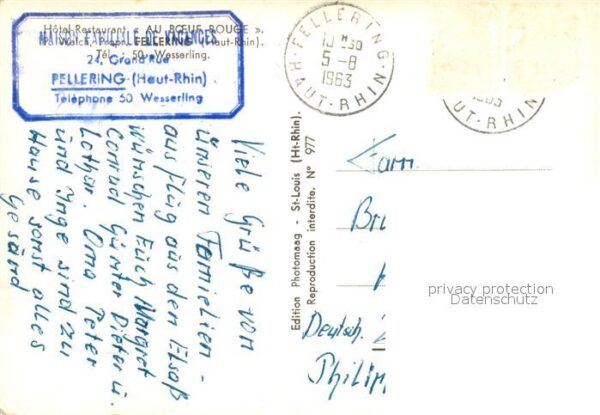 Hôtel-Restaurant « AU BŒUF ROUGE ».
FELLERING (Haut-Rhin).
Tél. : 50 Wesserling.
MAISON FAMILIALE DE VACANCES
24, Grand'Rue
FELLERING (Haut-Rhin)
Téléphone 50 Wesserling
FELLERING
10 H 30
5-8
1963
HAUT-RHIN
1963
HAUT-RHIN
Viele Grüße von
unseren Familien-
ausflug aus den Elsaß
wünschen Euch Margret
Conrad Günter Dieter u.
Lothar. Oma Peter
und Inge sind zu
Hause sonst alles
Gesund
Edition Photomaag - St-Louis (Ht-Rhin).
Reproduction interdite. N° 977
Fam.
Deutsch.
privacy protection
Datenschutz